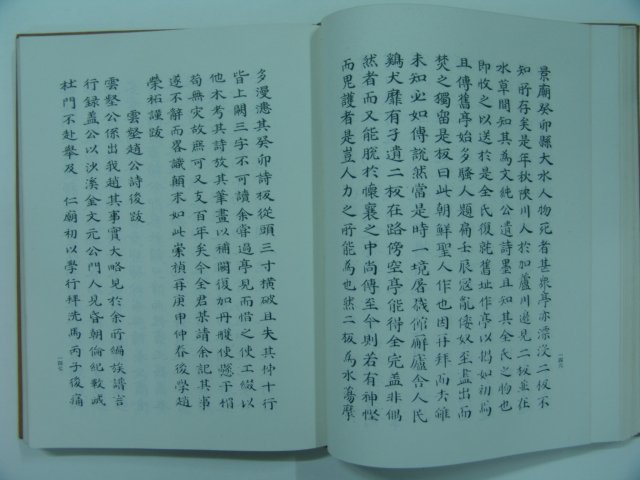 景廟癸卯縣大水人物死者甚衆亭亦漂沒二板不
知所存矣是年秋陜川人於加廬川邊見二板並在
水草間知其爲文純公遺詩墨且知其全氏之物也
即收之以送於是全氏復就舊址作亭以揭如初焉
且傳舊亭始多騷人題痛壬辰寇亂倭奴至盡出而
焚之獨留是板曰此朝鮮聖人作也因再拜而去雖
未知必如傳說然當是時一境居民館廨廬舍人民
鷄犬靡有孑遺二板在路傍空亭能得全完蓋非偶
然者而又能脫於懷襄之中尚傳至今則若有神慳
而鬼護者是豈人力之所能爲也然二板爲水蕩摩
一四六
多漫漶其癸卯詩板從頭三寸橫破且失其中十行
皆上闕三字不可讀余嘗過亭見而惜之使工綴以
他木考其詩放其筆畫以補闕復加丹雘使懸于楣
苟無灾故庶可又支百年矣今全君基請余記其事
遂不辭而畧識顚末如此崇禎再庚甲仲春後學趙
榮祏謹跋
雲壑趙公詩後跋
雲壑公係出我趙其事實大略見於余所編族譜言
行録蓋公以沙溪金文元公門人見昏朝倫紀斁滅
杜門不赴擧及 仁廟初以學行拜洗馬丙子後痛
一四七